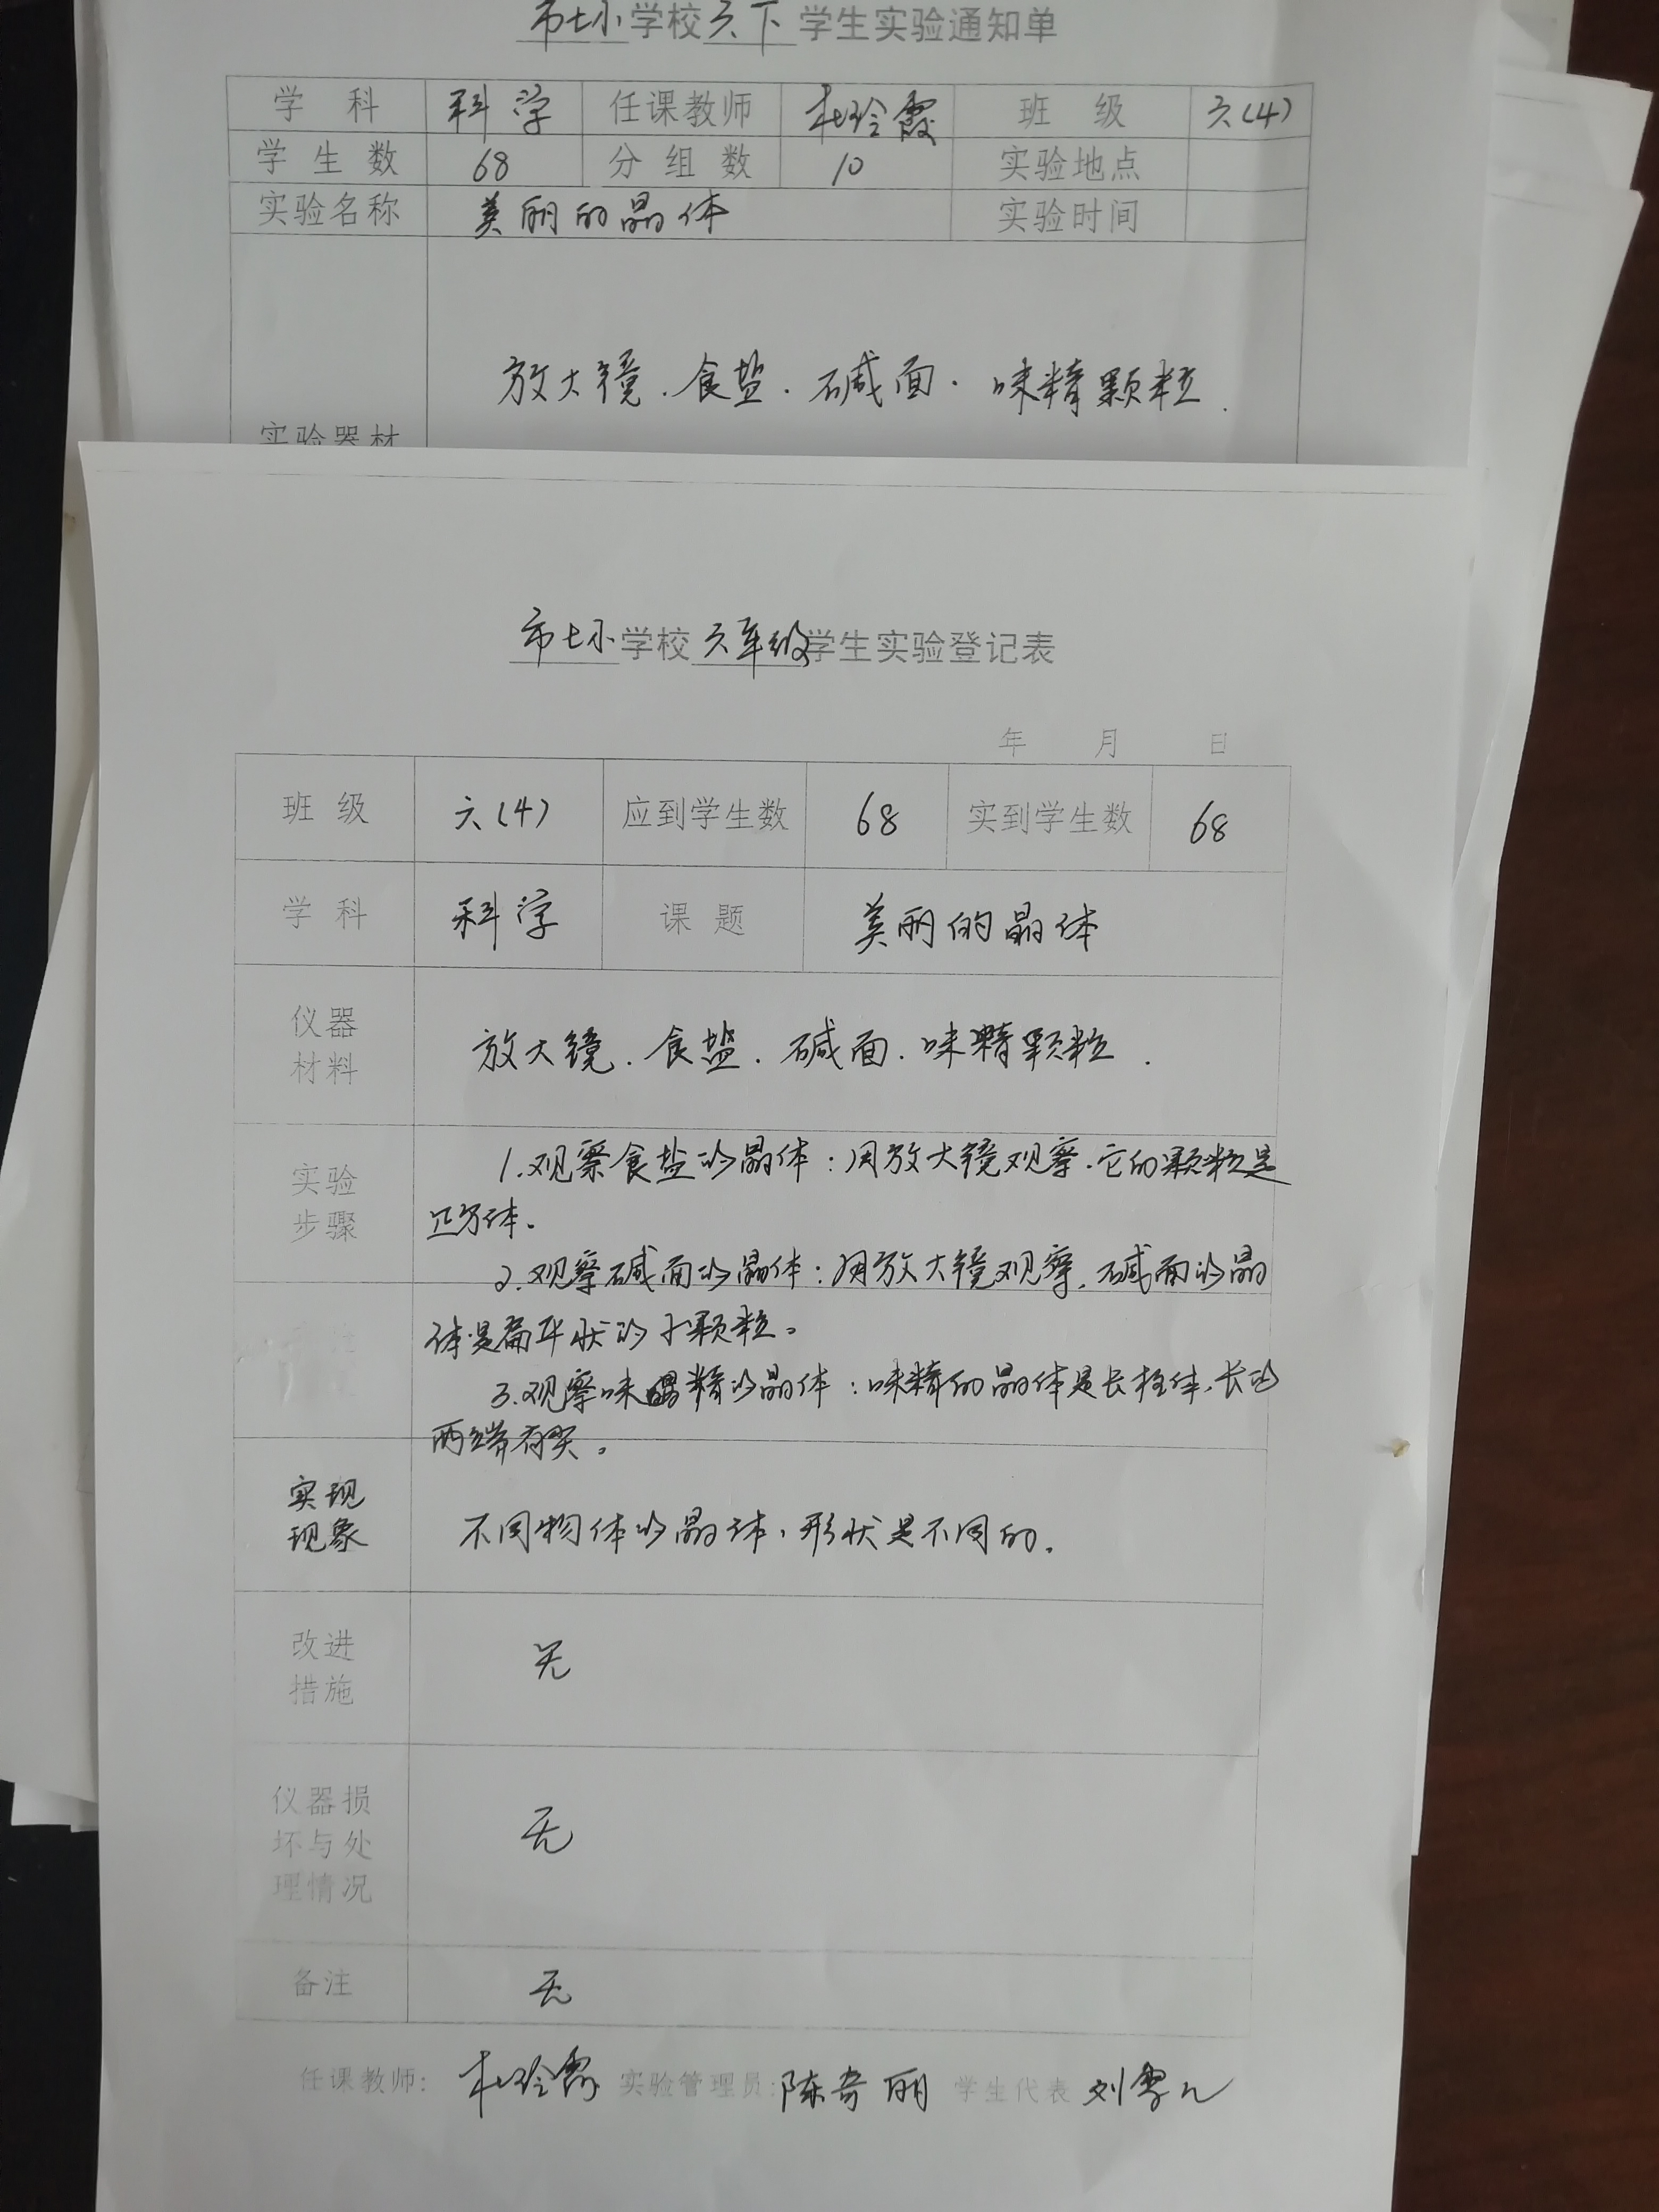 市七小学校六下学生实验通知单
学 科 科学 任课教师 杜玲霞 班 级 六(4)
学生数 68 分组数 10 实验地点
实验名称 美丽的晶体 实验时间
放大镜.食盐.碱面.味精颗粒.
实验器材
市七小学校六年级学生实验登记表
年 月 日
班 级 六(4) 应到学生数 68 实到学生数 68
学 科 科学 课 题 美丽的晶体
仪器
材料
放大镜.食盐.碱面.味精颗粒.
实验
步骤
1.观察食盐的晶体:用放大镜观察.它的颗粒是
正方体.
2.观察碱面的晶体:用放大镜观察.碱面的晶
体是扁平状的小颗粒。
3.观察味精的晶体:味精的晶体是长柱体,长的
两端有尖。
实现
现象
不同物体的晶体,形状是不同的.
改进
措施
无
仪器损
坏与处
理情况
无
备注 无
任课教师: 杜玲霞 实验管理员: 陈奇丽 学生代表 刘雪